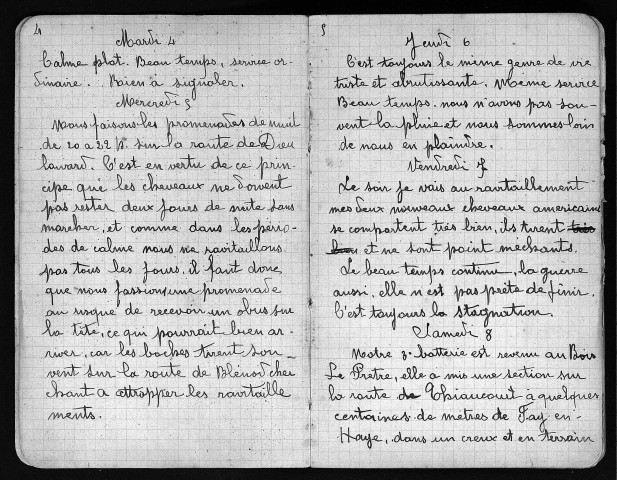 4
Mardi 4
Calme plat. Beau temps, service or-
dinaire. Rien à signaler.
Mercredi 5
Nous faisons les promenades de nuit
de 20 à 22 h. sur la route de Dieu
louard. C'est en vertu de ce prin-
cipe que les cheveaux ne doivent
pas rester deux jours de suite sans
marcher, et comme dans les pério-
des de calme nous ne ravitaillons
pas tous les jours, il faut donc
que nous fassions une promenade
au risque de recevoir un obus sur
la tête, ce qui pourrait bien ar-
river, car les boches tirent sou-
vent sur la route de Blénod cher
chant a attrapper les ravitaille
ments.
5
Jeudi 6
C'est toujours le même genre de vie
triste et abrutissante. Même service
Beau temps. nous n'avons pas sou-
vent la pluie et nous sommes loin
de nous en plaindre.
Vendredi 7
Le soir je vais au ravitaillement
mes deux nouveaux cheveaux americains
se comportent très bien, ils tirent très
bien et ne sont point mechants.
Le beau temps continue, la guerre
aussi, elle n'est pas prête de finir.
C'est toujours la stagnation.
Samedi 8
Notre 3e batterie est revenu au Bois
Le Prêtre, elle a mis une section sur
la route de Thiaucourt à quelques
centaines de metres de Fay en-
Haye, dans un creux et en terrain